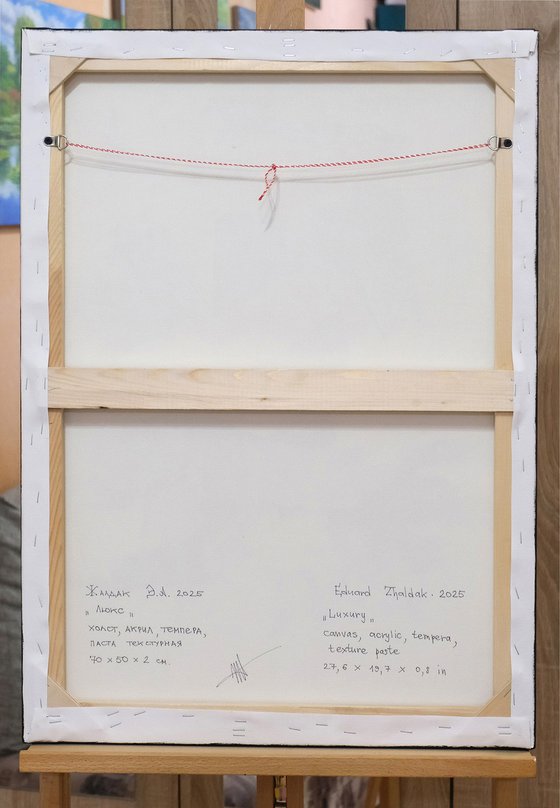 Жалдак Э.А. 2025
„ Люкс „
холст, акрил, темпера,
паста текстурная
70 x 50 x 2 см.
Eduard Zhaldak. 2025
„Luxury„
canvas, acrylic, tempera,
texture paste
27,6 x 19,7 x 0,8 in